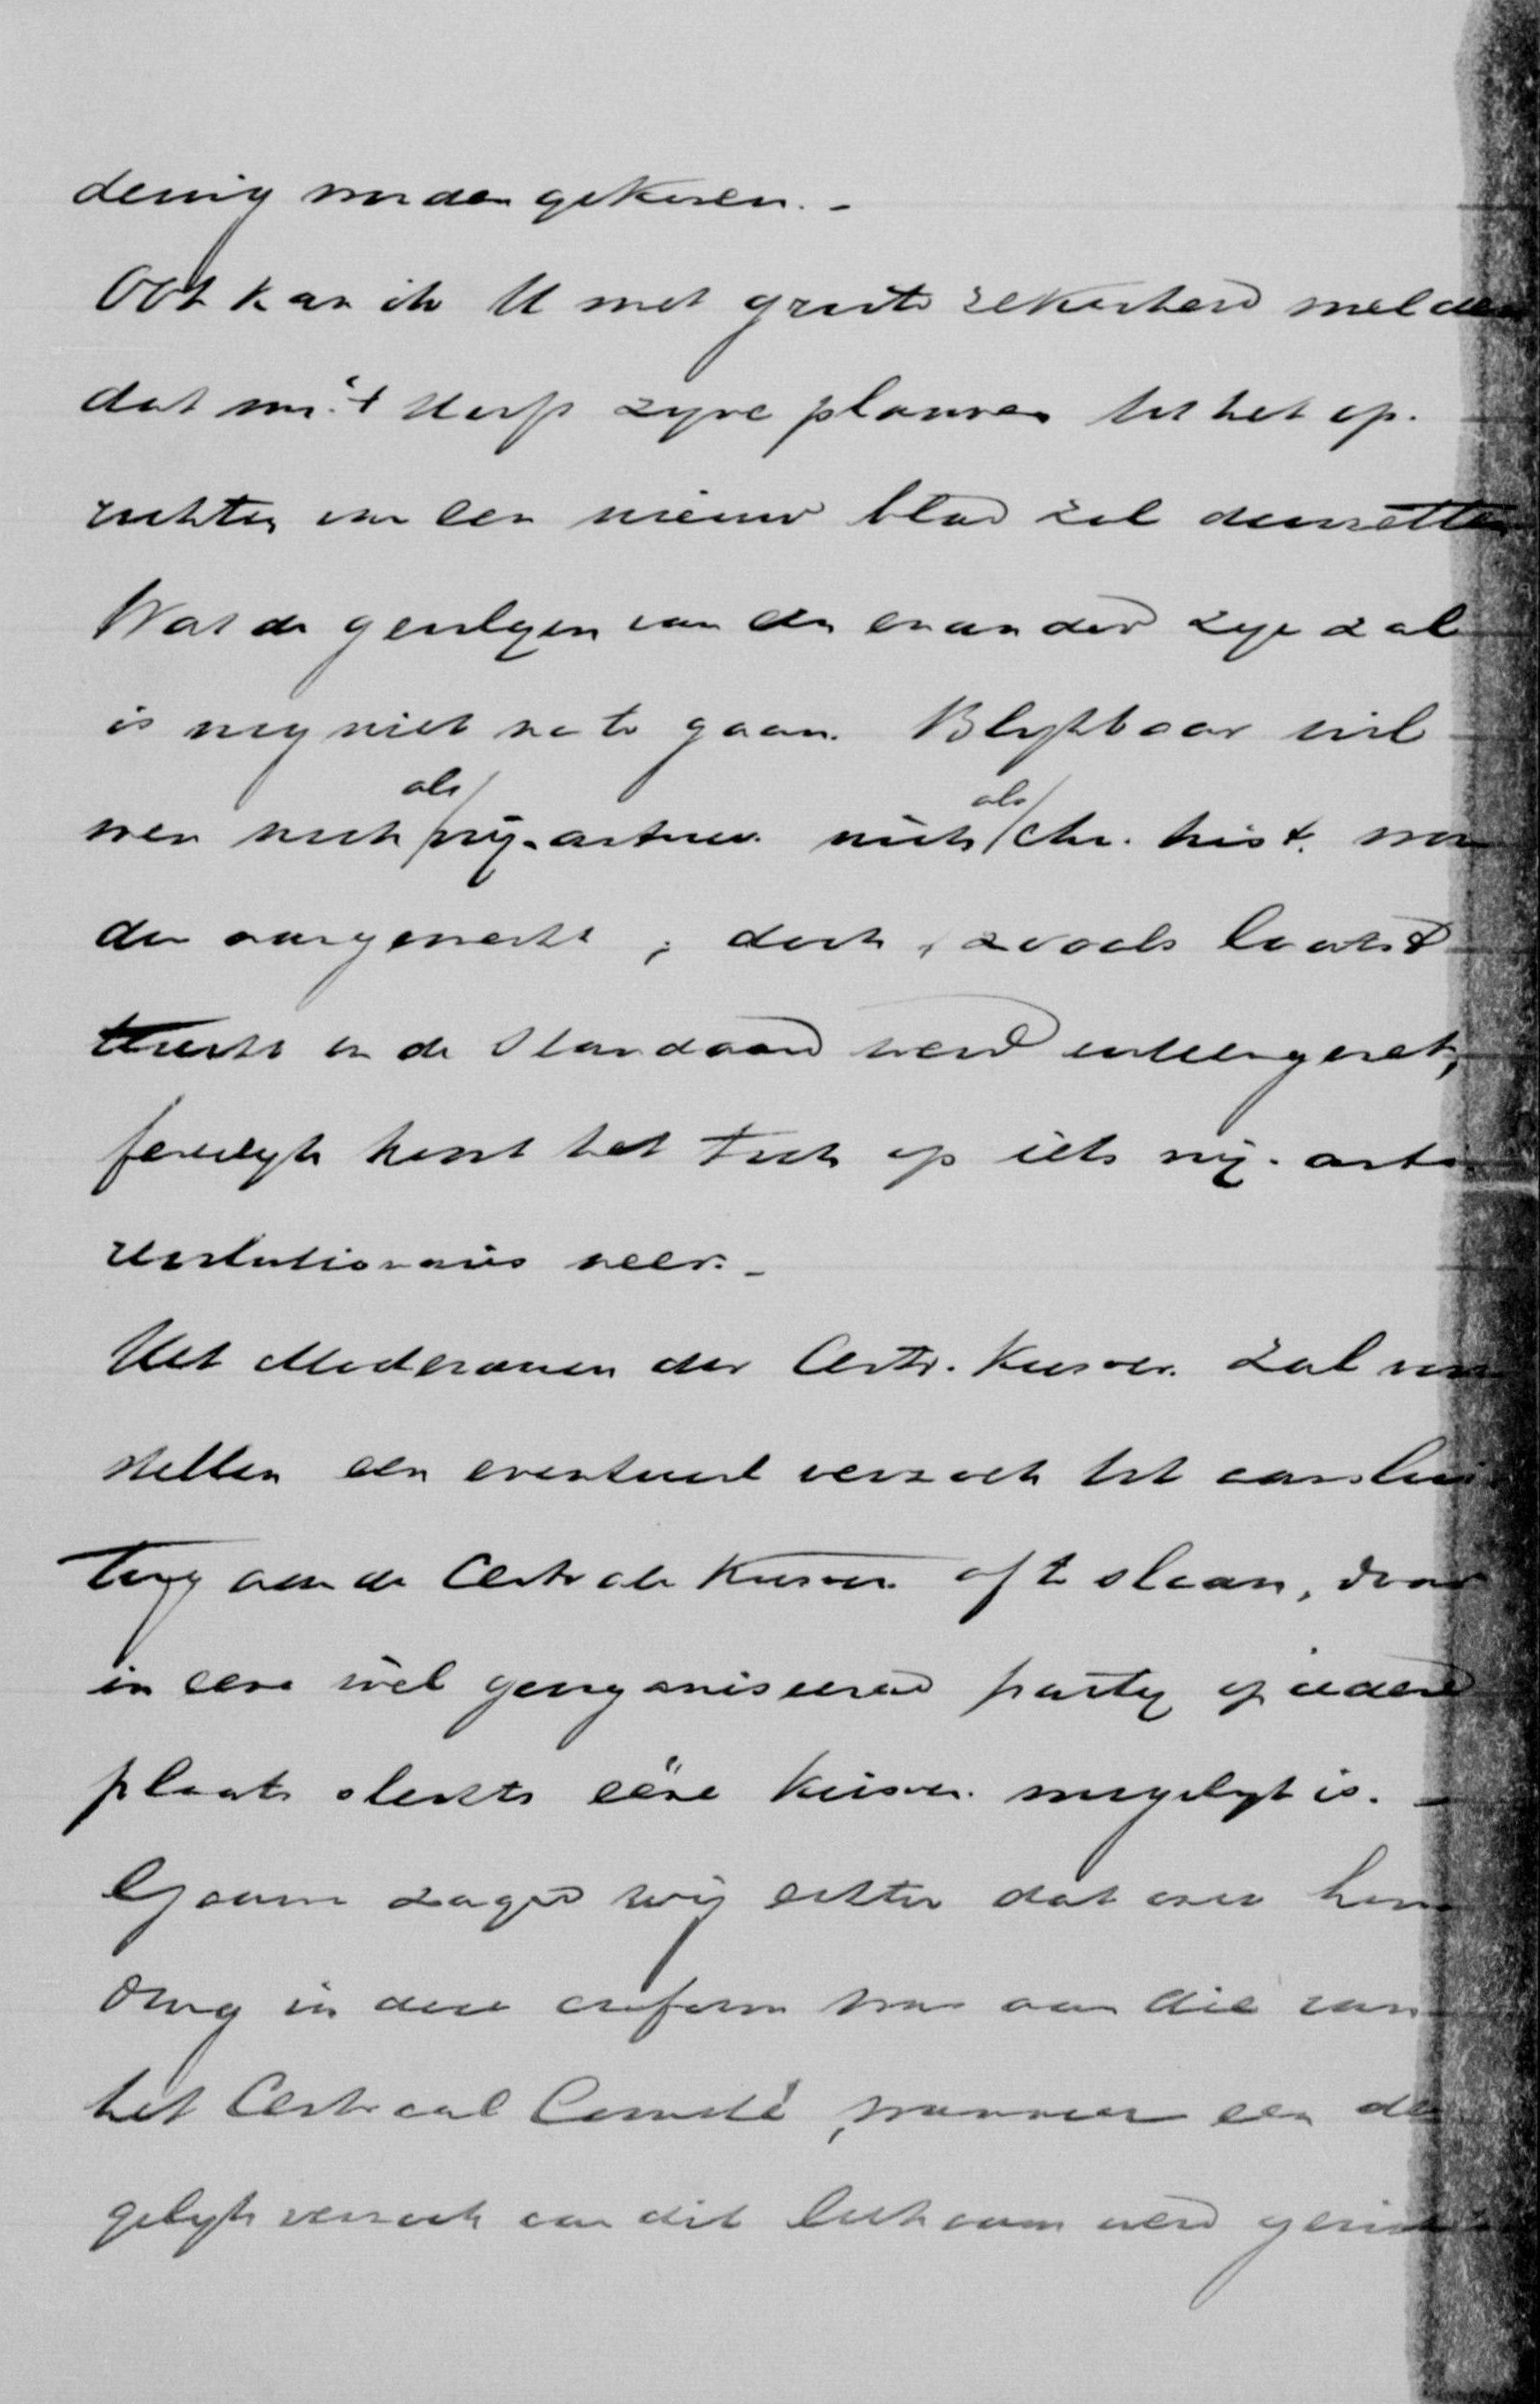 dering worden gekozen. -
Ook kan ik U met groote zekerheid melden
dat mr. 't Hooft zyne plannen tot het op-
richten van een nieuw blad zal doorzetten
Wat de gevolgen van een en ander zyn zal
is nog niet na te gaan. Blykbaar wil
men noch als/vrij-antirev. noch als/chr. hist. wor
den aangemerkt; doch, zooals laatst
terecht in de Standaard werd uiteengezet,
feitelyk komt het toch op iets vrij-anti
revolutionairs neer. -
Het Moderamen der Centr. Kiesver. zal voor
stellen een eventueel verzoek tot aanslui
ting aan de Centrale Kiesver. af te slaan, daar
in eene wel georganiseerde party op iedere
plaats slechts ééne kiesver. mogelyk is. -
Gaarne zagen wij echter dat onze hou
ding in deze conform was aan die van
het Centraal Comité, wanneer een der
gelyk verzoek aan dit lichaam werd gericht